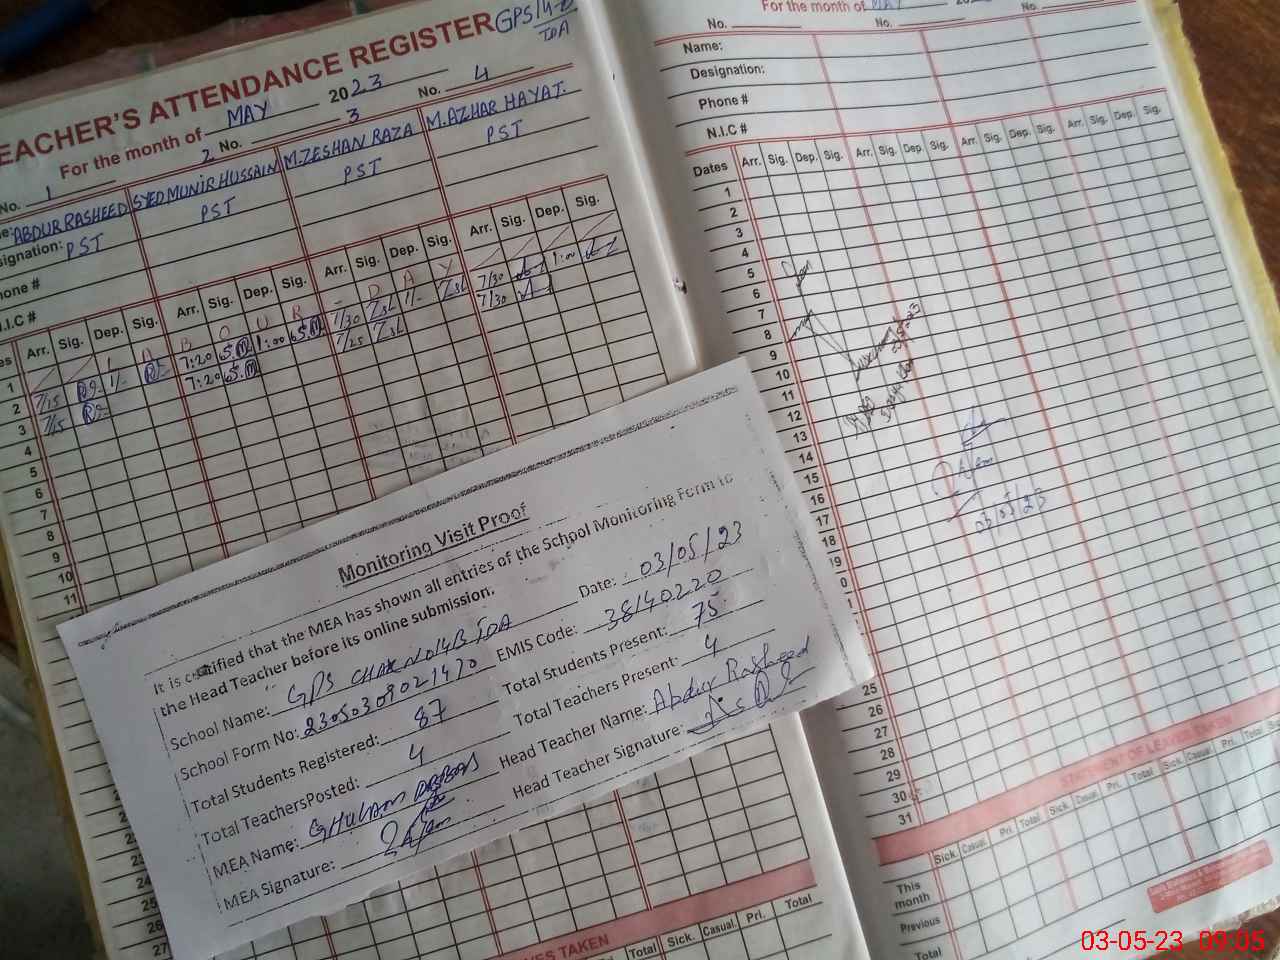 TEACHER'S ATTENDANCE REGISTER
For the month of MAY 2023
No. 1 2 No. 3 No. 4
ABDUR RASHEED SYED MUNIR HUSSAIN M.ZESHAN RAZA M.AZHAR HAYAT.
Designation: PST PST PST PST
Phone #
N.I.C #
Arr. Sig. Dep. Sig. Arr. Sig. Dep. Sig. Arr. Sig. Dep. Sig. Arr. Sig. Dep. Sig.
1 L A B O U R D A Y
2 7/15 1/- 7:20 S.M 1:00 S.M 7/30 1/- 7/30 1:00
3 7/15 7:20 S.M 7/25 7/30
4
5
6
7
8
9
10
11
Monitoring Visit Proof
It is certified that the MEA has shown all entries of the School Monitoring Form to
the Head Teacher before its online submission.
School Name: GPS CHAK NO 14B TDA Date: 03/05/23
School Form No: 23050308021470 EMIS Code: 38140220
Total Students Registered: 87 Total Students Present: 75
Total TeachersPosted: 4 Total Teachers Present: 4
MEA Name: GHULAM ABBAS Head Teacher Name: Abdur Rasheed
MEA Signature: Head Teacher Signature:
24
25
27
Total Sick. Casual. Pri. Total
For the month of MAY
No. No. No.
Name:
Designation:
Phone #
N.I.C #
Dates Arr. Sig. Dep. Sig. Arr. Sig. Dep. Sig. Arr. Sig. Dep. Sig. Arr. Sig. Dep. Sig.
1
2
3
4
5
6
7
8
9
10
11
12
13
14
15
16
17
18
19
03/05/23
25
26
27
28
29
30
31
STATEMENT OF LEAVES TAKEN
Sick. Casual. Pri. Total Sick. Casual. Pri. Total Sick. Casual. Pri. Total
This
month
Previous
Total
03-05-23 09:05